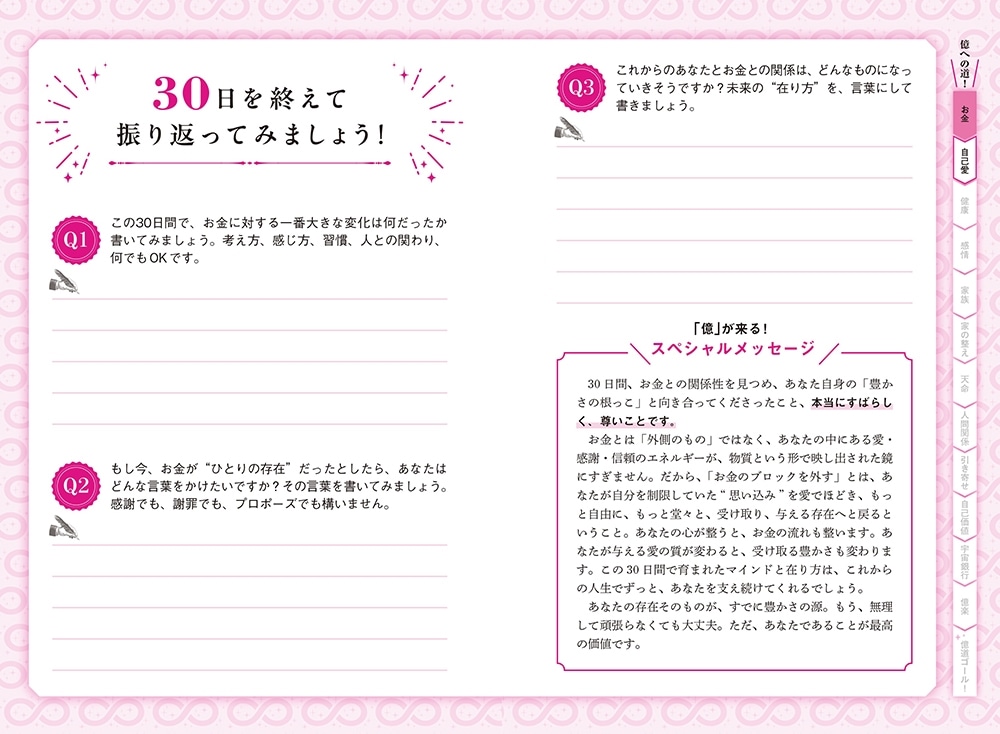 30日を終えて
振り返ってみましょう！
Q1
この30日間で、お金に対する一番大きな変化は何だったか
書いてみましょう。考え方、感じ方、習慣、人との関わり、
何でもOKです。
Q2
もし今、お金が“ひとりの存在”だったとしたら、あなたは
どんな言葉をかけたいですか？その言葉を書いてみましょう。
感謝でも、謝罪でも、プロポーズでも構いません。
Q3
これからのあなたとお金との関係は、どんなものになっ
ていきそうですか？未来の“在り方”を、言葉にして
書きましょう。
「億」が来る！
スペシャルメッセージ
30日間、お金との関係性を見つめ、あなた自身の「豊か
さの根っこ」と向き合ってくださったこと、本当にすばらし
く、尊いことです。
お金とは「外側のもの」ではなく、あなたの中にある愛・
感謝・信頼のエネルギーが、物質という形で映し出された鏡
にすぎません。だから、「お金のブロックを外す」とは、あ
なたが自分を制限していた“思い込み”を愛でほどき、もっ
と自由に、もっと堂々と、受け取り、与える存在へと戻ると
いうこと。あなたの心が整うと、お金の流れも整います。あ
なたが与える愛の質が変わると、受け取る豊かさも変わりま
す。この30日間で育まれたマインドと在り方は、これから
の人生でずっと、あなたを支え続けてくれるでしょう。
あなたの存在そのものが、すでに豊かさの源。もう、無理
して頑張らなくても大丈夫。ただ、あなたであることが最高
の価値です。
億への道！
お金
自己愛
健康
感情
家族
家の整え
天命
人間関係
引き寄せ
自己価値
宇宙銀行
億楽
億道ゴール！